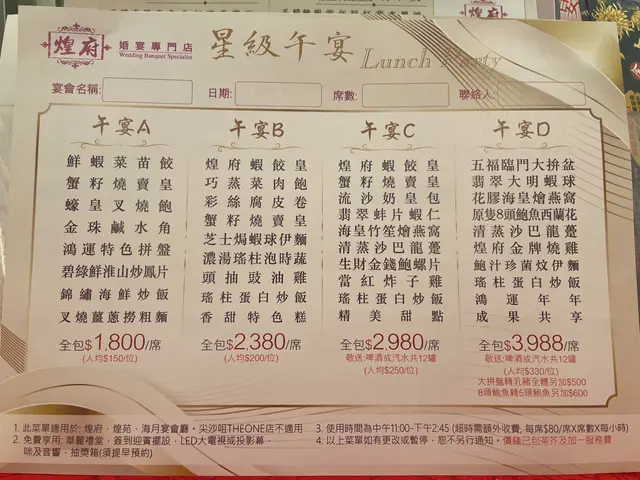 煌府
婚宴專門店
Wedding Banquet Specialist
星級午宴
Lunch Party
宴會名稱:
日期:
席數:
聯絡人:
午宴A
鮮蝦菜苗餃
蟹籽燒賣皇
蠔皇叉燒飽
金珠鹹水角
鴻運特色拼盤
碧綠鮮淮山炒鳳片
錦繡海鮮炒飯
叉燒薑蔥撈粗麵
全包$1,800/席
(人均$150/位)
午宴B
煌府蝦餃皇
巧蒸菜肉飽
彩絲腐皮卷
蟹籽燒賣皇
芝士焗蝦球伊麵
濃湯瑤柱泡時蔬
頭抽豉油雞
瑤柱蛋白炒飯
香甜特色糕
全包$2,380/席
(人均$200/位)
午宴C
煌府蝦餃皇
蟹籽燒賣皇
流沙奶皇包
翡翠蚌片蝦仁
海皇竹笙燴燕窩
清蒸沙巴龍躉
生財金錢鮑螺片
當紅炸子雞
瑤柱蛋白炒飯
精美甜點
全包$2,980/席
敬送:啤酒或汽水共12罐
(人均$250/位)
午宴D
五福臨門大拼盆
翡翠大明蝦球
花膠海皇燴燕窩
原隻8頭鮑魚西蘭花
清蒸沙巴龍躉
煌府金牌燒雞
鮑汁珍菌炆伊麵
瑤柱蛋白炒飯
鴻運年年
成果共享
全包$3,988/席
敬送:啤酒或汽水共12罐
(人均$330/位)
大拼盤轉乳豬全體另加$500
8頭鮑魚轉5頭鮑魚另加$600
1. 此菜單適用於: 煌府，煌苑、海月宴會廳。尖沙咀THEONE店不適用
2. 免費享用: 華麗禮堂，簽到迎賓擺設，LED大電視或投影幕，
咪及音響，抽獎箱(須提早預約)
3. 使用時間為中午11:00-下午2:45 (超時需額外收費, 每席$80/席X席數X每小時)
4. 以上菜單如有更改或暫停，恕不另行通知。價錢已包茶芥及加一服務費